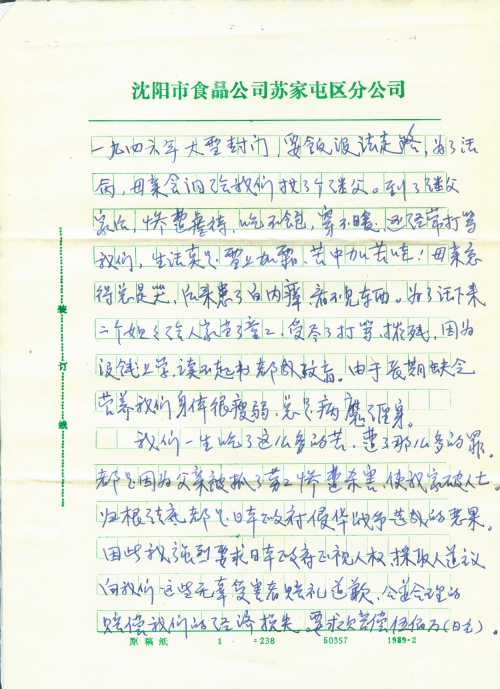 沈阳市食品公司苏家屯区分公司
一九四六年大雪封门，要饭没法走路，为了活
命，母亲含泪给我们找了个继父。到了继父
家后，惨遭虐待，吃不饱，穿不暖，还经常打骂
我们，生活真是雪上加霜，苦中加苦哇！母亲急
得总是哭，后来患了白内障，看不见东西。为了活下来
二个姐姐给人家当了童工，受尽了打骂、摧残，因为
没钱上学，读不起书都外教育。由于长期缺乏
营养我们身体很瘦弱，总是病魔缠身。
我们一生吃了这么多的苦，遭了那么多的罪，
都是因为父亲被抓了劳工惨遭杀害，使我家破人亡。
归根结底都是日本政府侵华战争造成的恶果。
因此我强烈要求日本政府正视人权，采取人道主义
向我们这些无辜受害者赔礼道歉，公道合理的
赔偿我们的经济损失。要求赔偿伍佰万（日元）。
装订线
原稿纸 1 =238 50357 1989·2